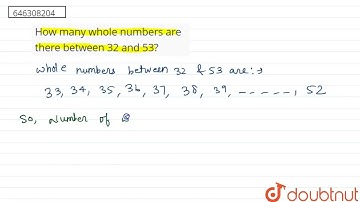 646308204
How many whole numbers are
there between 32 and 53?
Whole numbers between 32 & 53 are:→
33, 34, 35, 36, 37, 38, 39, -----, 52
So, Number of
doubtnut